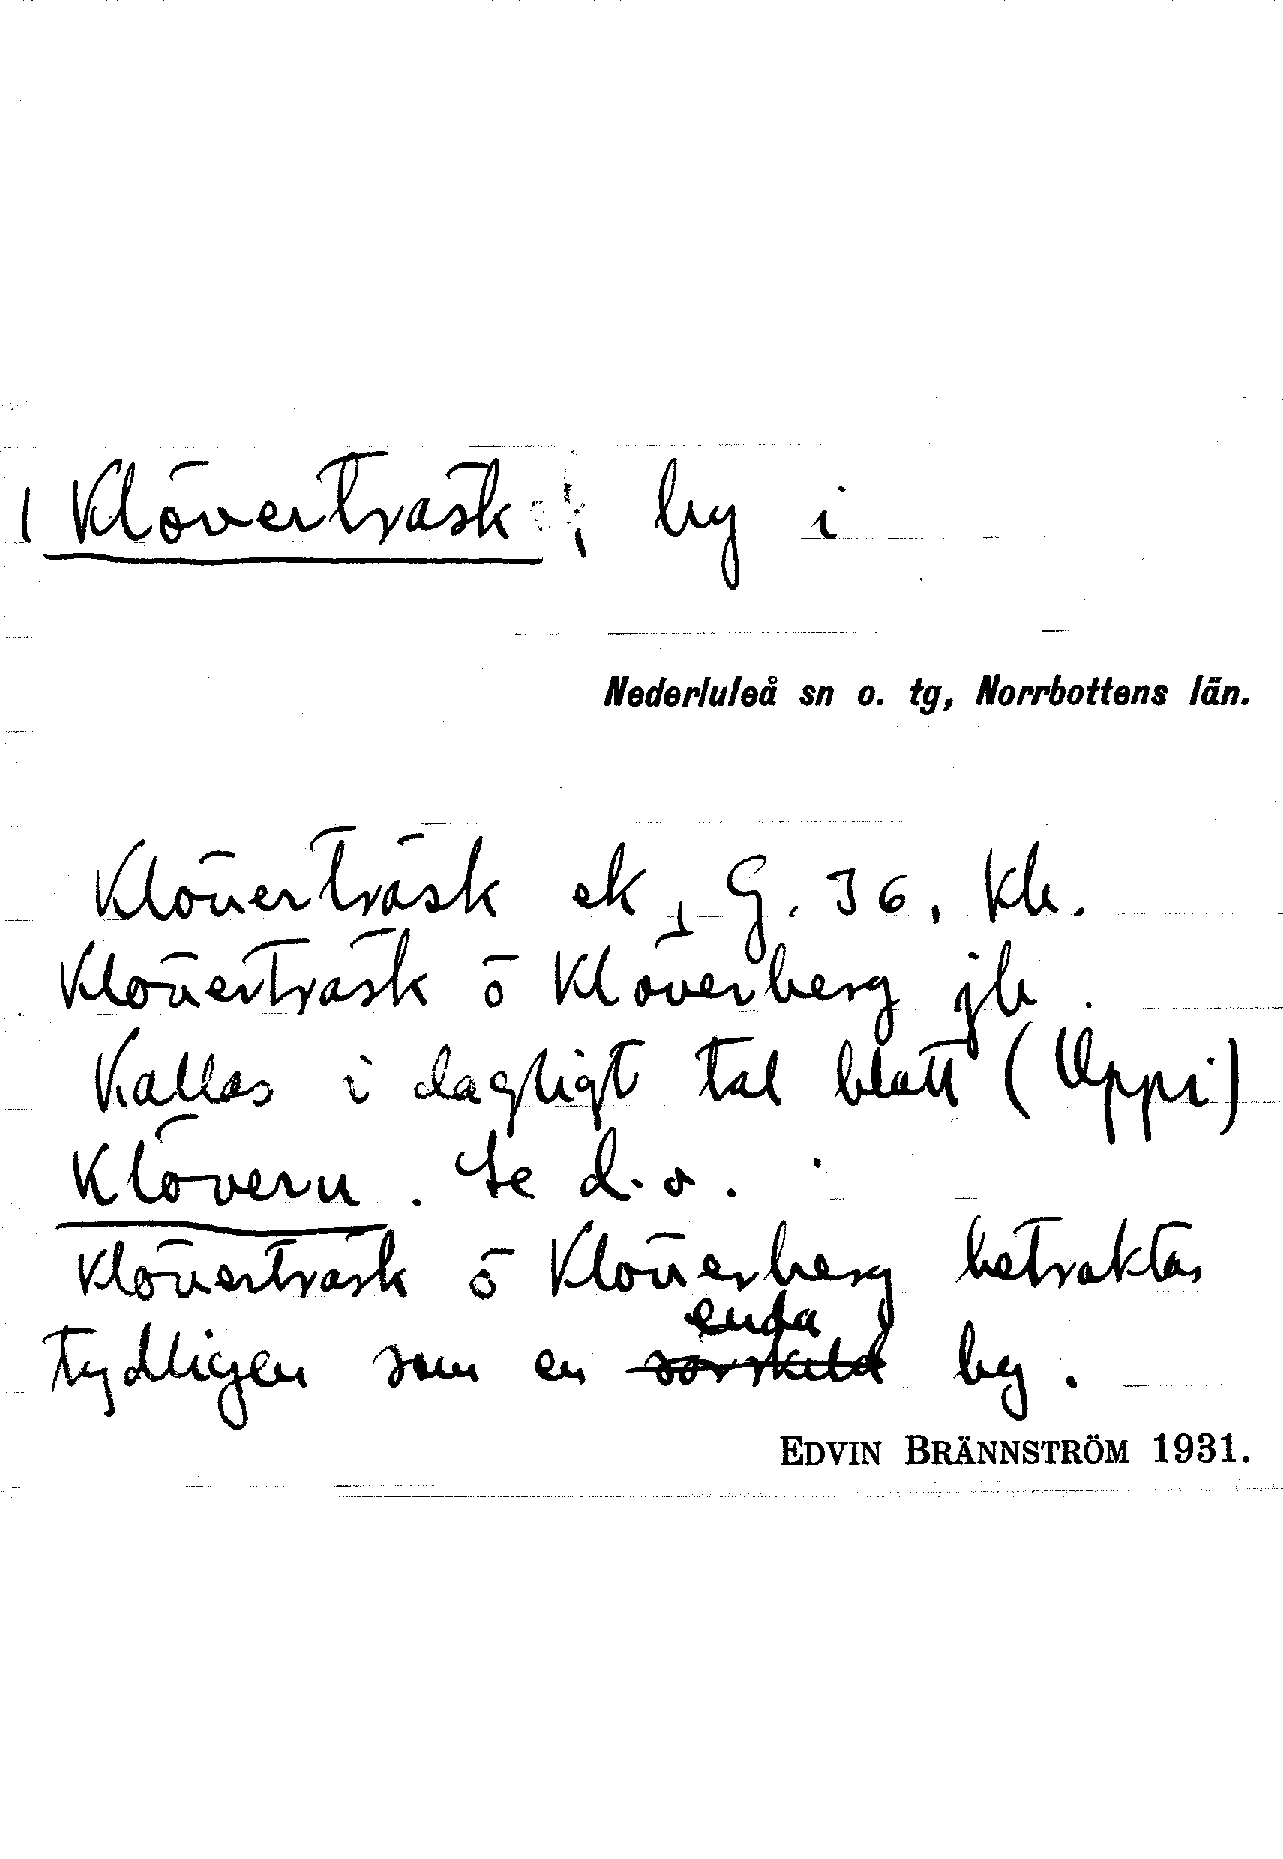 Klöverträsk, by i
Nederluleå sn o. tg, Norrbottens län.
Klöverträsk ek, G. 36, Kb.
Klöverträsk o Klöverberg jb.
Kallas i dagligt tal blott (Uppi)
Klövern. Se d. o.
Klöverträsk o Klöverberg betraktas
enda
tydligen som en särskild by.
EDVIN BRÄNNSTRÖM 1931.